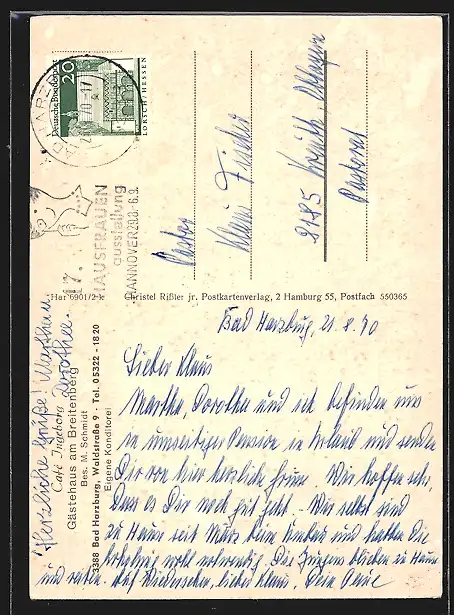 BAD HARZBURG
Deutsche Bundespost
20
LORSCH / HESSEN
17.
HAUSFRAUEN
ausstellung
HANNOVER 29.8.-6.9.
Pastor
Klaus
2185
Pastorat
Har 6901/2 k Christel Rißler jr. Postkartenverlag, 2 Hamburg 55, Postfach 550365
Gästehaus am Breitenberg
Café Ingeborg
Bes. M. Schmidt
3388 Bad Harzburg, Waldstraße 9 · Tel. 05322 - 18 20
Eigene Konditorei
Herzliche Grüße Martha u.
Dorothee.
Bad Harzburg, 21.8.70
Lieber Klaus
Martha, Dorothea und ich befinden uns
in unseitiger Pension in Urlaub und senden
Dir von hier herzliche Grüße. Wir hoffen sehr,
dass es Dir noch gut geht. Wir selbst sind
zu Haus seit März beim Umbau und hatten die
Erholung wohl notwendig. Die Jungens blieben zu Haus
und Auf Wiedersehen, lieber Klaus. Dein